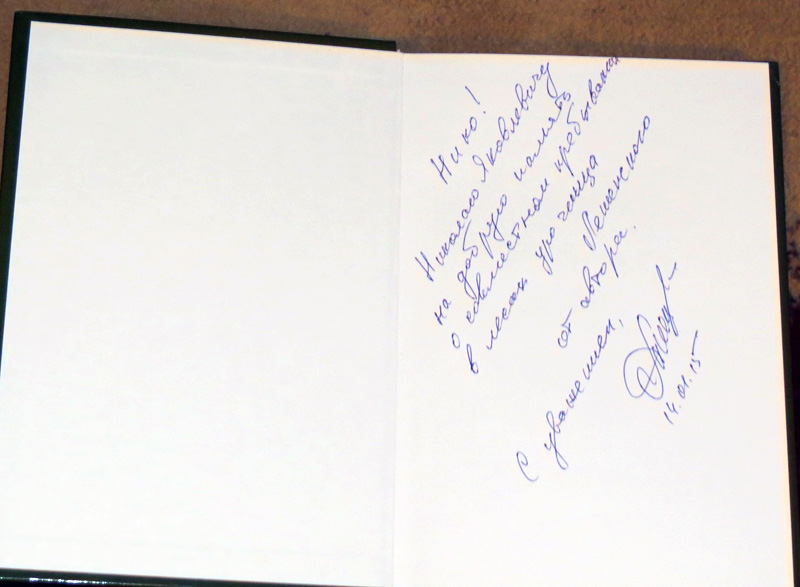 Нико!
Николаю Яковлевичу
на добрую память
о совместном пребывании
в лесах урочища
от автора.
С уважением,
14.01.15